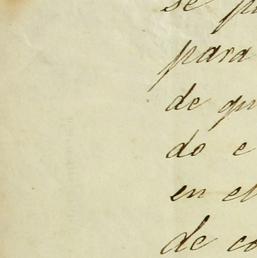 se
para
de
do e
en el
de co